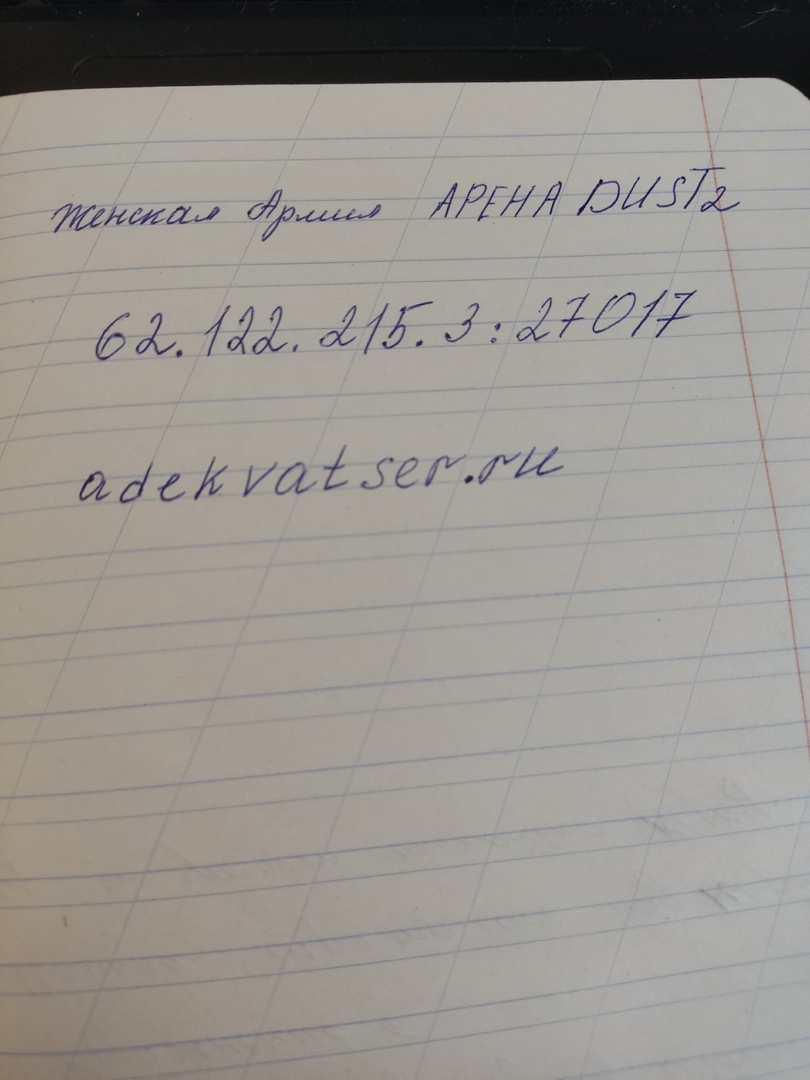 Женская Армия АРЕНА DUST2
62.122.215.3:27017
adekvatser.ru